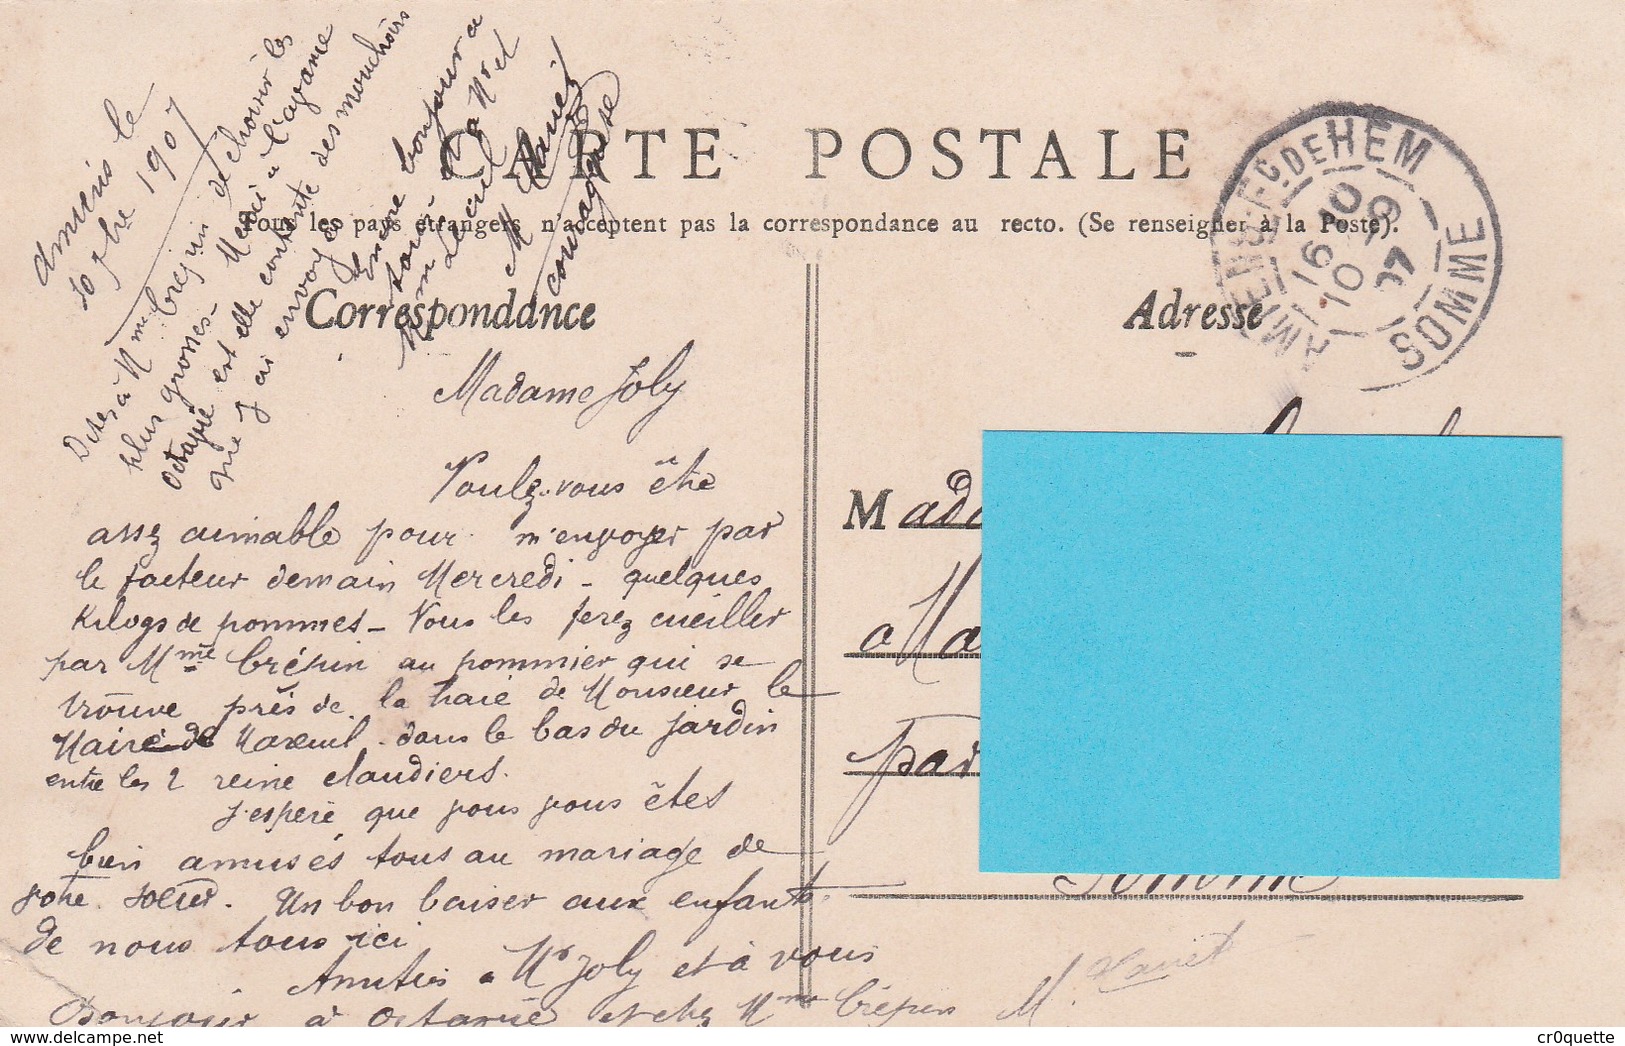 Amiens le
10 7bre 1907
Dites à Mme Crépin de choisir les
plus grosses - Merci à l'avance
Octavie est elle contente des mouchoirs
que j'ai envoyés
Encore bonjour a
tous et à Mr et
Mm Lecul
M Manet
CARTE POSTALE
Tous les pays étrangers n'acceptent pas la correspondance au recto. (Se renseigner à la Poste).
Correspondance
Adresse
AMIENS-Fg DE HEM
16 10
10 09
07
SOMME
Madame Joly
Voulez-vous être
assez aimable pour m'envoyer par
le facteur demain Mercredi - quelques
Kilogs de pommes - Vous les ferez cueiller
par Mme Crépin au pommier qui se
trouve près de la haie de Monsieur le
Maire de Mareuil dans le bas du jardin
entre les 2 reine claudiers.
J'espère que vous vous êtes
bien amusés tous au mariage de
votre soeur. Un bon baiser aux enfants
de nous tous ici
Amitiés a Mr Joly et à vous
Bonjour à Octavie et chez Mme Crépin M. Manet
Mad
a Ma
par
Somme
cr0quette